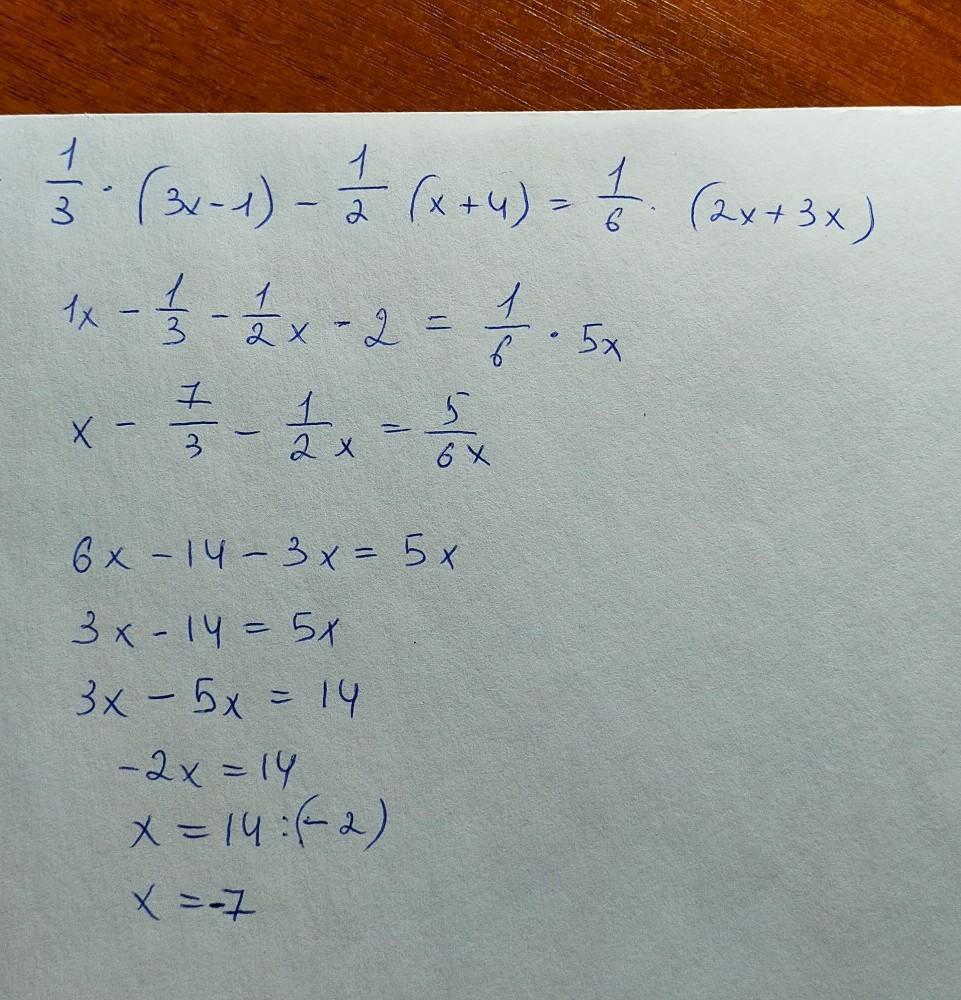 1/3 · (3x-1) - 1/2 (x+4) = 1/6 · (2x+3x)
1x - 1/3 - 1/2 x - 2 = 1/6 · 5x
x - 7/3 - 1/2 x = 5/6x
6x - 14 - 3x = 5x
3x - 14 = 5x
3x - 5x = 14
-2x = 14
x = 14 : (-2)
x = -7